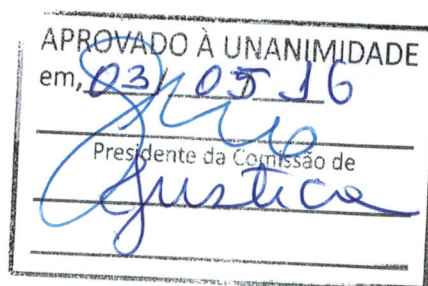 APROVADO À UNANIMIDADE
em, 03/ 05 16
Presidente da Comissão de
Justica